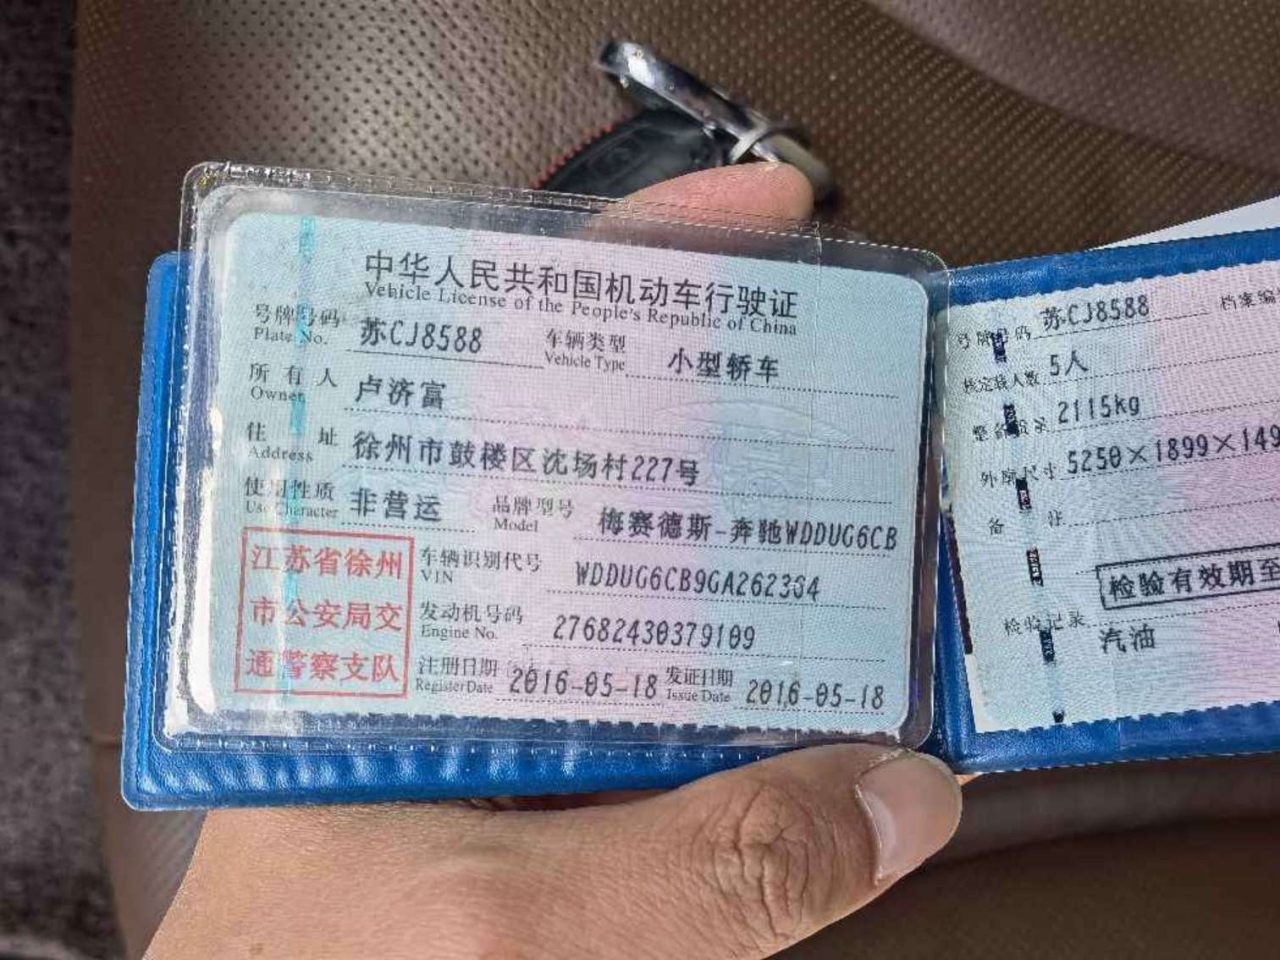 中华人民共和国机动车行驶证
Vehicle License of the People's Republic of China
号牌号码 苏CJ8588 车辆类型 小型轿车
Plate No. Vehicle Type
所有人 卢济富
Owner
住址 徐州市鼓楼区沈场村227号
Address
使用性质 非营运 品牌型号 梅赛德斯-奔驰WDDUG6CB
Use Character Model
江苏省徐州
市公安局交
通警察支队
车辆识别代号 WDDUG6CB9GA262364
VIN
发动机号码 27682430379109
Engine No.
注册日期 2016-05-18 发证日期 2016-05-18
Register Date Issue Date
号牌号码 苏CJ8588 档案编
核定载人数 5人
整备质量 2115kg
外廓尺寸 5250×1899×149
备注
检验有效期至
检验记录
汽油